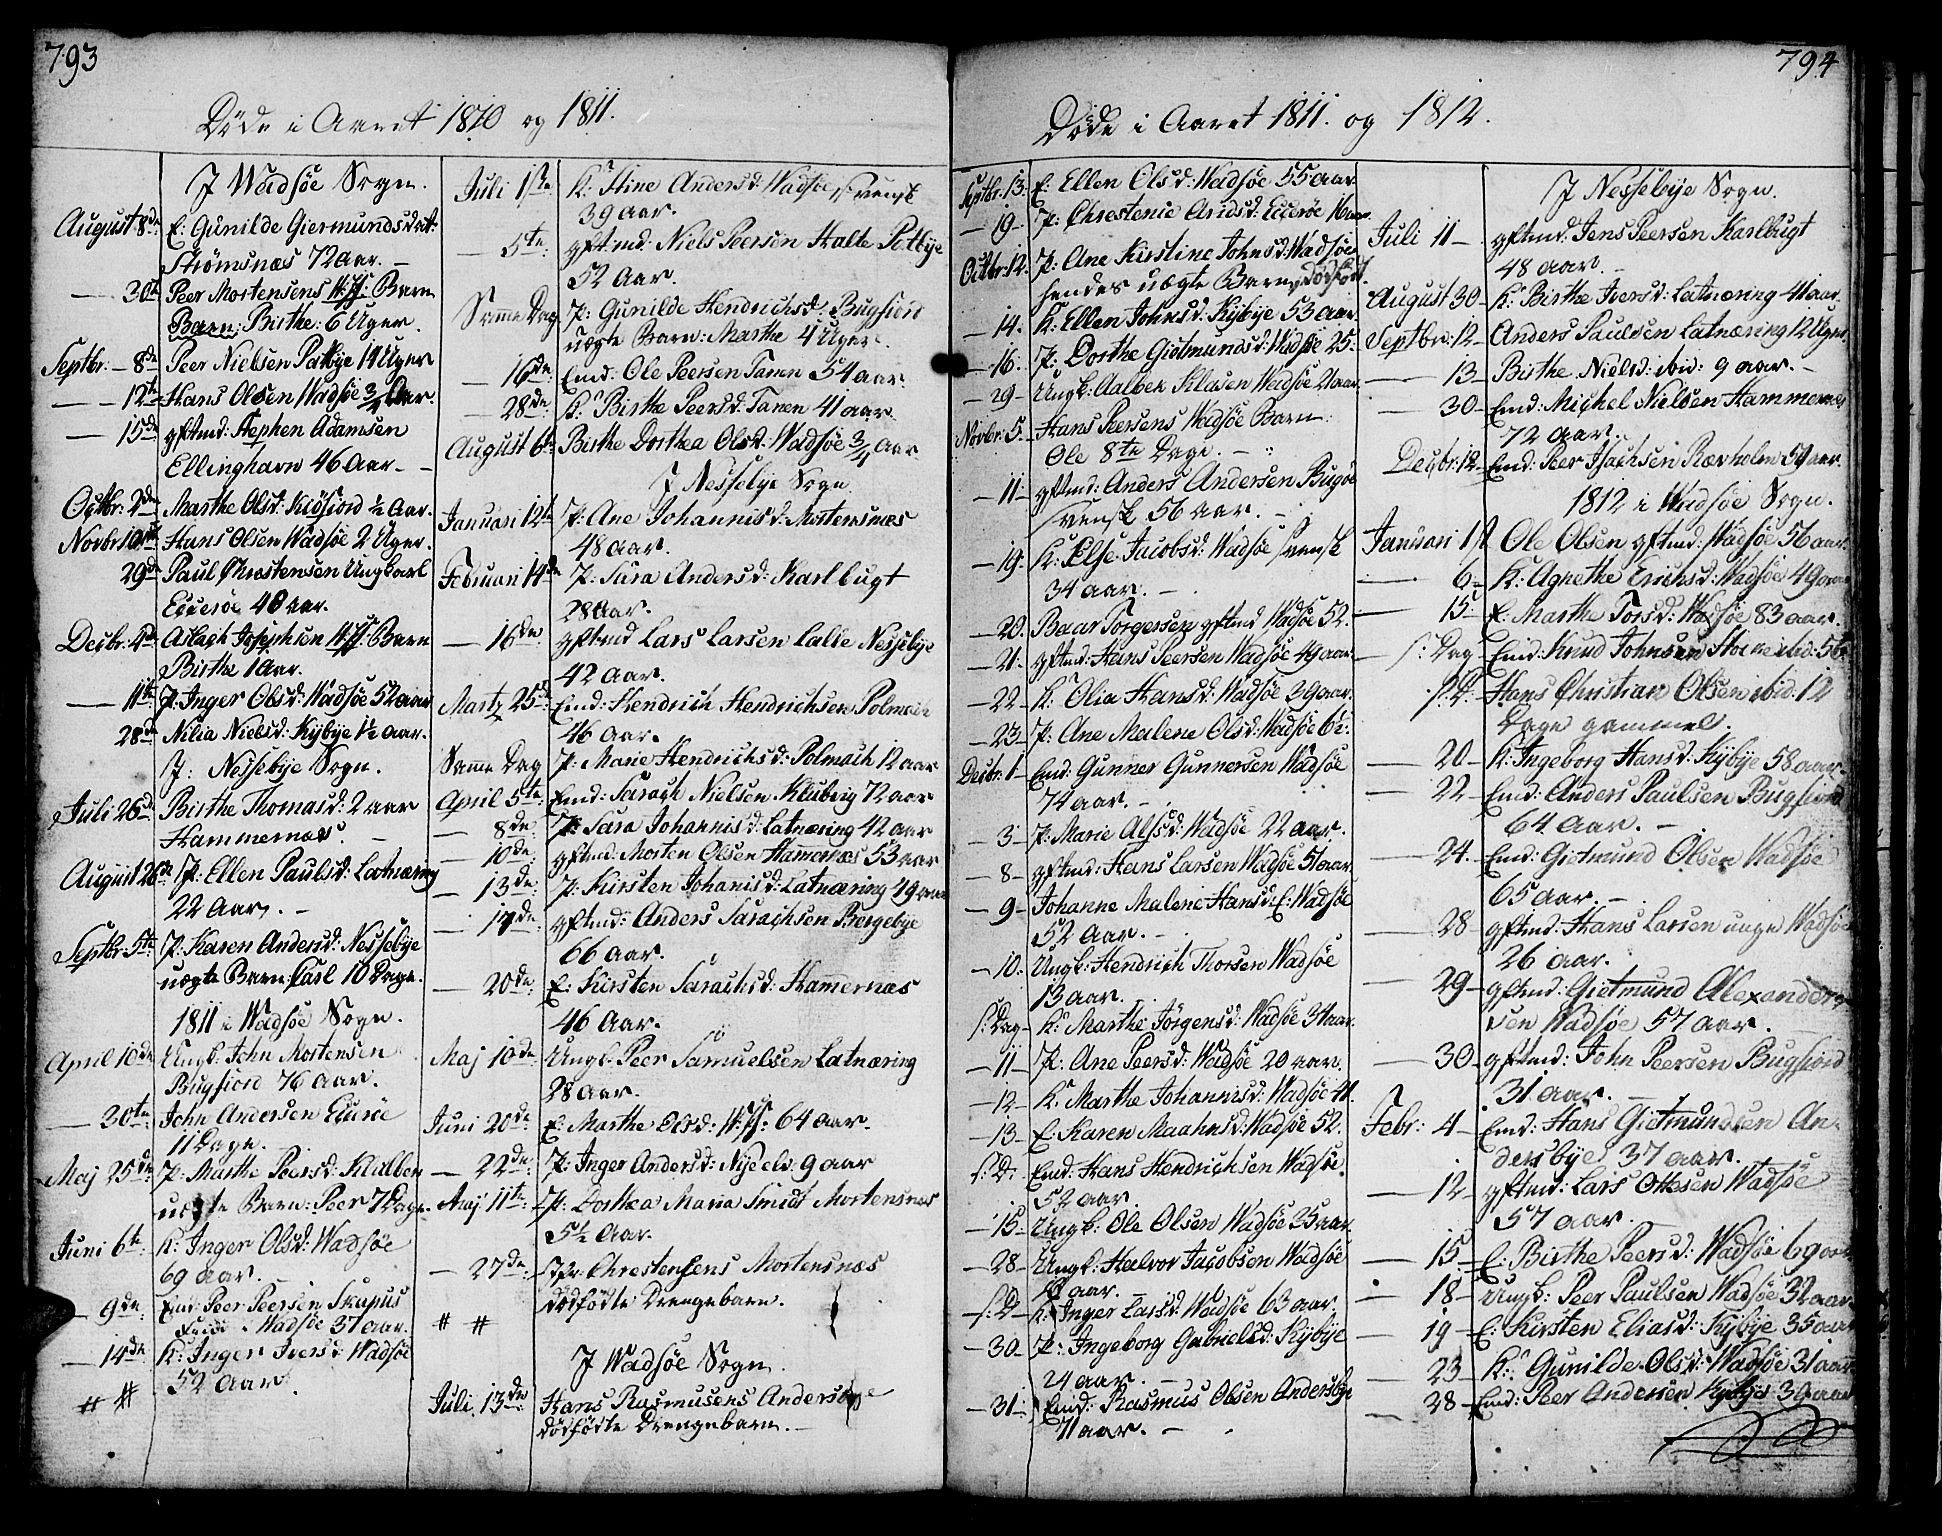 793
Døde i Aaret 1810 og 1811.
J Wadsøe Sogn.
August 8de E: Gunilde Giermundsdat:
Strømsnæs 72 Aar. -
— 30te Peer Mortensens Barn
Barn: Birthe: 6 Uger.
Septbr: - 8de Peer Nielsen Patbye 14 Uger
— 12te Hans Olsen Wadsøe 3/4 Aar.
— 15de gftmd: Stephen Adamsen
Ellinghavn 46 Aar -
Octbr: 2den Marthe Olsd: Kløfiord ½ Aar.
Novbr Hans Olsen Wadsøe 2 Uger.
29de Paul Christensen Ungkarl
Eccerøe 40 Aar.
Decbr: 4de Aslach Josephsen Barn
Birthe 1 Aar.
— 11te P: Inger Olsd: Wadsøe 52 aar
28de Nilia Nielsd: Kybye 1½ Aar.
J: Nessebye Sogn.
Juli 26de Birthe Thomasd: 2 aar
Hammernæs. -
August 26de P: Ellen Paulsd: Latnæring
22 Aar. -
Septbr: 5te P: Karen Andersd: Nessebye
uægte Barn: Carl 10 Dage.
1811 i Wadsøe Sogn.
April 10de Ungk: John Mortensen
Bugfiord 76 aar.
— 30te John Andersen
11 Dage.
Maj 25de P: Marthe Peersd: Klubben
uægte Barn: Peer 7 Dage
Juni 6te K: Inger Olsd: Wadsøe
69 aar.
— 9de Emd: Peer Peersen Skapus
Wadsøe 37 aar.
— 14de K: Inger Iversd: Wadsøe
52 Aar.
# #
Juli 1ste K: Stine Andersd: Wadsøe svensk
39 aar.
— 5te gftmd: Niels Peersen Halte Patbye
52 Aar.
Samme Dag P: Gunilde Hendrichsd: Bugfiord
uægte Barn: Marthe 4 Uger.
— 16de Emd: Ole Peersen Tanen 54 aar.
— 28de K: Birthe Peersd: Tanen 41 aar.
August 6te Birthe Dorthea Olsd: Wadsøe 3/4 Aar
J Nessebye Sogn
Januari 12te P: Ane Johannisd: Mortensnæs
48 aar.
Februari 14de P: Sara Andersd: Karlbugt
28 Aar.
— 16de gftmd Lars Larsen Lalle Nessebye
42 aar.
Martz 25de Emd: Hendrich Hendrichsen Polmach
46 aar.
Samme Dag P: Marie Hendrichsd: Polmach 12 aar
April 5te Emd: Sarach Nielsen Klubvig 72 aar
— 8de P: Sara Johannisd: Latnæring 42 aar
— 10de gftmd: Morten Olsen Hammernæs 53 aar
— 13de P: Kirsten Johanisd: Latnæring 49 aar
— 17de gftmd: Anders Sarachsen Bergebye
66 aar.
— 20de E: Kirsten Sarachsd: Hamernæs
46 Aar.
Maj 10de Ungk: Peer Samuelsen Latnæring
28 aar.
Juni 20de E: Marthe Olsd: 64 aar.
— 22de P: Inger Andersd: Nyeelv 9 aar
Maj 11te P: Dorthea Maria Smidt Mortensnæs
5½ Aar.
— 27de Chrestensens Mortensnæs
dødfødte Drengebarn.
# #
J Wadsøe Sogn.
Juli 13de Hans Rasmusens Andersbye
dødfødte Drengebarn. -
794
Døde i Aaret 1811. og 1812.
Septbr: 13: E: Ellen Olsd: Wadsøe 55 aar.
— 19 - P: Chrestenie Aridsd: Eccerøe 16 aar
Octbr: 12. P: Ane Kirstine Johnsd: Wadsøe
hendes uægte Barn, dødfødt.
— 14. K: Ellen Johnsd: Kybye 53 aar
— 16. P: Dorthe Gietmundsd: Wadsøe 25.
— 29 - Ungk: Aalbek Klasen Wadsøe 21 aar
Novbr: 5. Hans Peersens Wadsøe Barn
Ole 8te Dage. -
— 11 - gftmd: Anders Andersen Bugøe
svensk 56 aar. -
— 19. K: Else Jacobsd: Wadsøe svensk
34 aar. -
— 20. Baar Torgersen gftmd Wadsøe 52.
— 21. gftmd: Hans Peersen Wadsøe 49 aar.
— 22 K: Olia Hansd: Wadsøe 39 aar.
— 23 - P: Ane Malene Olsd: Wadsøe 6½:
Decbr: 1 - Emd: Gunner Gunnersen Wadsøe
74 aar. -
— 3 - P: Marie Alfsd: Wadsøe 22 aar.
— 8 - gftmd: Hans Larsen Wadsøe 51 aar
— 9 - Johanne Malene Hansd: E: Wadsøe
52 aar. -
— 10. Ungk: Hendrich Thorsen Wadsøe
13 aar.
s: Dag - K: Marthe Jörgensd: Wadsøe 34 aar.
— 11 - P: Ane Peersd: Wadsøe 20 aar.
— 12 - K: Marthe Johannisd: Wadsøe 41.
— 13 - E: Karen Maahnsd: Wadsøe 52.
s: D: Emd: Hans Hendrichsen Wadsøe.
52 aar
— 15. Ungk: Ole Olsen Wadsøe 35 aar.
— 28 - Ungk: Halvor Jacobsen Wadsøe
aar.
s: D - K: Inger Larsd: Wadsøe 63 aar.
— 30 - P: Ingeborg Gabrielsd: Kybye
24 aar. -
— 31: Emd: Rasmus Olsen Andersbye
71 aar. -
J Nessebye Sogn.
Juli 11 - gftmd: Jens Peersen Karlbugt
48 aar. -
August 30 - K: Birthe Iversd: Latnæring 41 aar.
Septbr: 12 - Anders Paulsen Latnæring 12 Uger
— 13 - Birthe Nielsd: ibid: 9 aar. -
— 30 - Emd: Michel Nielsen Hammernæs
72 aar.
Decbr: 12 - Emd: Peer Isachsen Rævholm 59 aar.
1812 i Wadsøe Sogn.
Januari 1st Ole Olsen gftmd: Wadsøe 56 aar.
— 6 - K: Agnethe Erichsd: Wadsøe 49 aar
— 15 - E: Marthe Torsd: Wadsøe 83 aar.
— s: Dag - Emd: Knud Johnsen ibid: 56
s: D: - Hans Christian Olsen ibid: 12
Dage gammel.
— 20 - K: Ingeborg Hansd: Kybye 58 aar.
— 22 - Emd: Anders Paulsen Bugfiord
64 aar. -
— 24. - Emd: Gietmund Olsen Wadsøe
65 aar. -
— 28 gftmd: Hans Larsen unge Wadsøe
26 aar.
— 29 - gftmd: Gietmund Alexander-
sen Wadsøe 57 aar.
— 30 - gftmd: John Peersen Bugfiord
31 aar. -
Febr: 4 - Emd: Hans Gietmundsen An-
dersbye 37 aar.
— 12 - gftmd: Lars Ottesen Wadsøe
57 aar.
— 15 - E: Birthe Peersd: Wadsøe 69 aar
— 18 - Ungk: Peer Paulsen Wadsøe 32 aar.
— 19 - E: Kirsten Eliasd: Kybye 35 aar
— 23 K: Gunilde Olsd: Wadsøe 31 aar
— 28 - Emd: Peer Andersen Kybye 39 aar